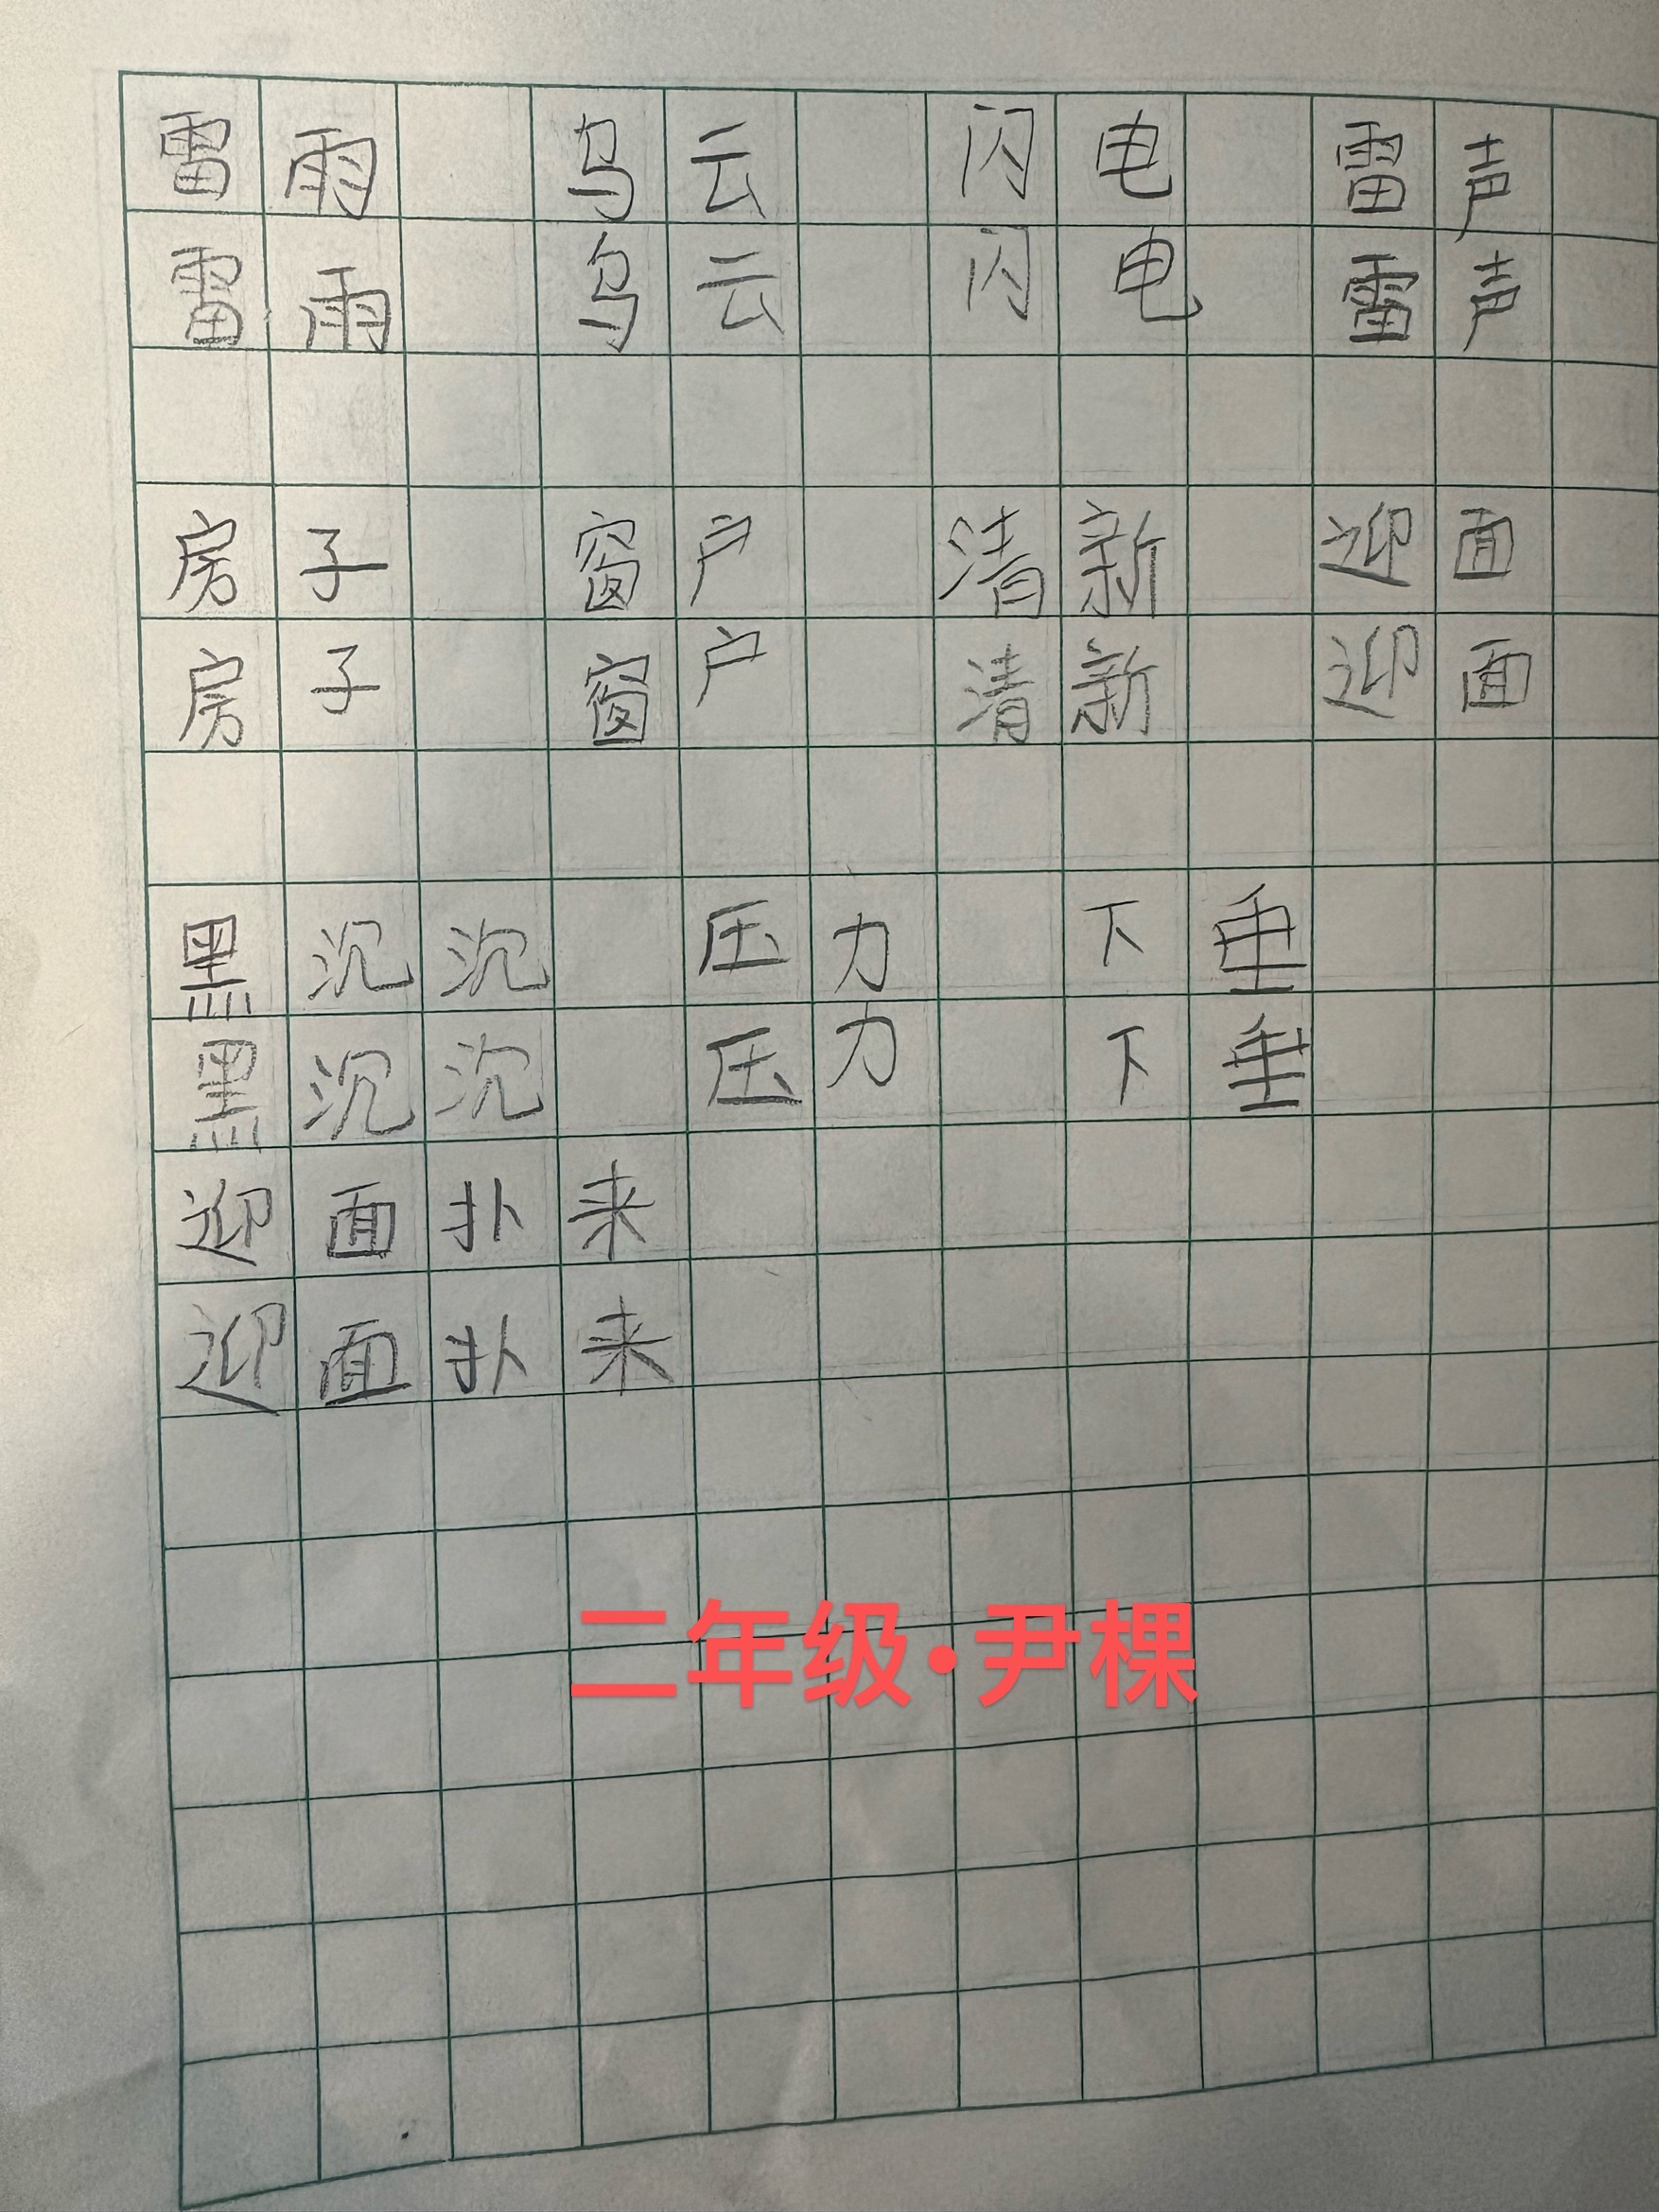 雷雨 乌云 闪电 雷声
雷雨 乌云 闪电 雷声
房子 窗户 清新 迎面
房子 窗户 清新 迎面
黑沉沉 压力 下垂
黑沉沉 压力 下垂
迎面扑来
迎面扑来
二年级·尹棵